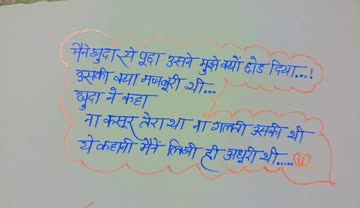 मैंने खुदा से पूछा उसने मुझे क्यों छोड दिया...!
उसकी क्या मजबूरी थी...
खुदा ने कहा
ना कसूर तेरा था ना गलती उसकी थी
ये कहानी मैंने लिखी ही अधूरी थी.....